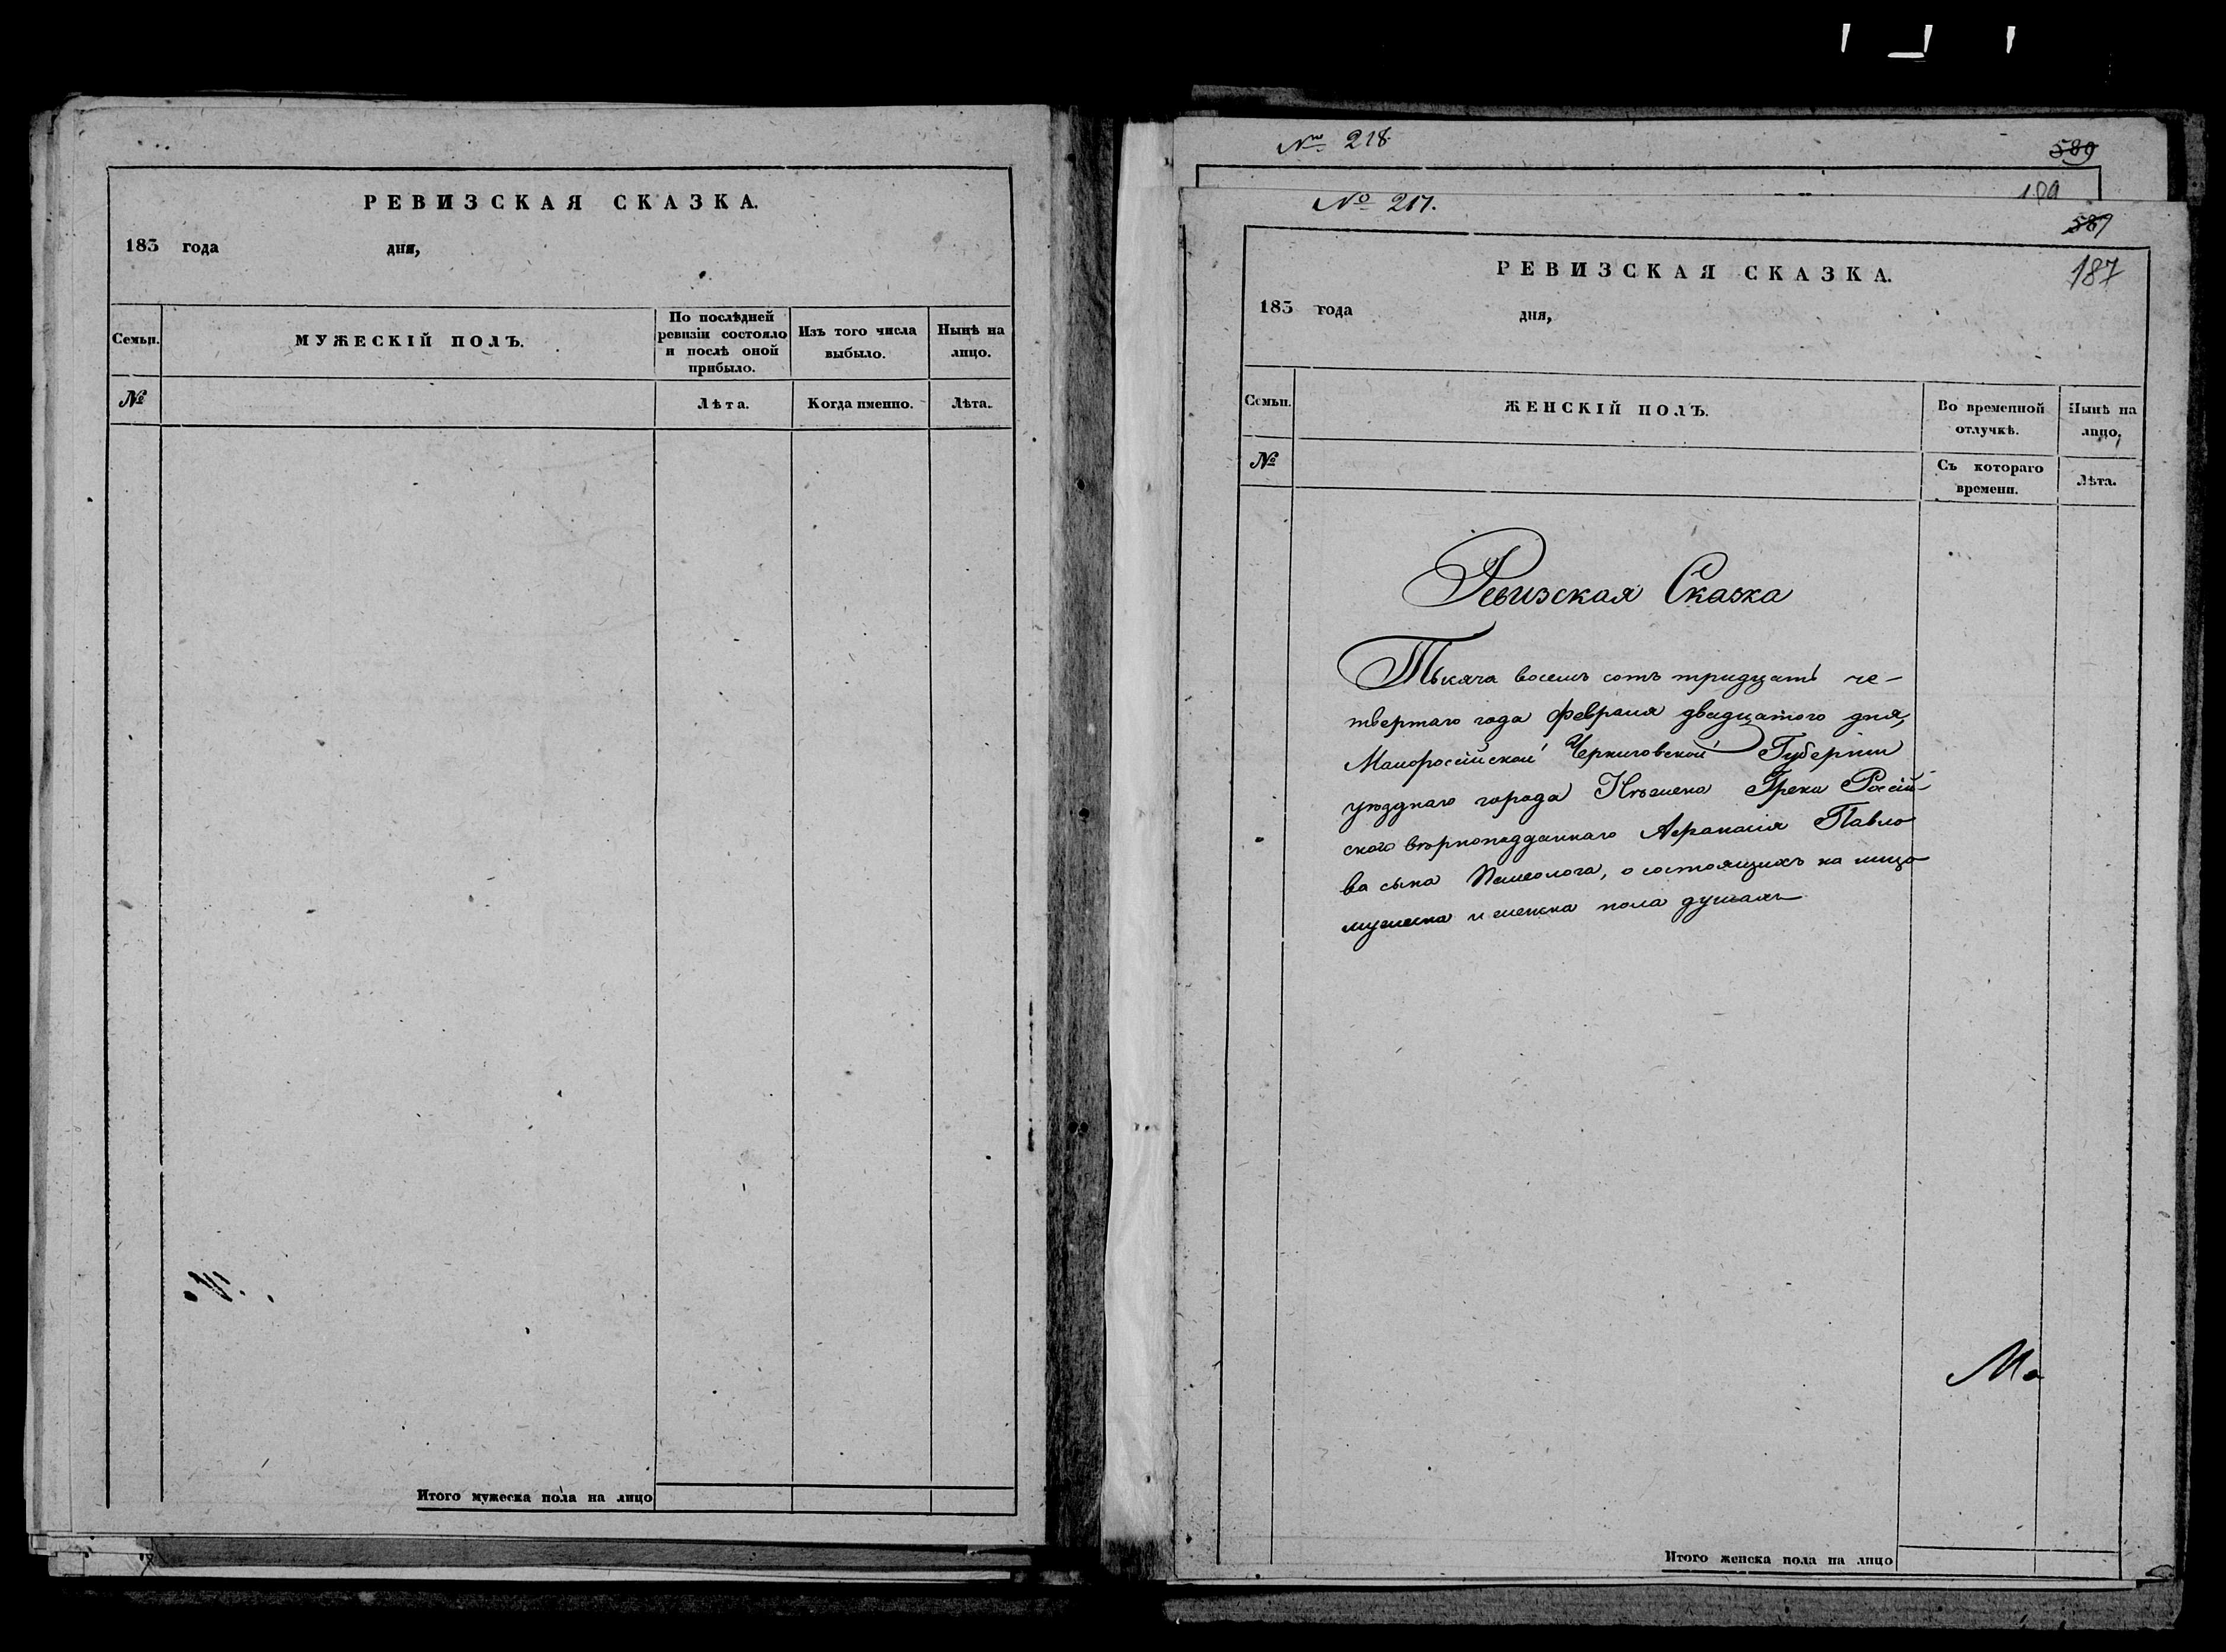 РЕВИЗСКАЯ СКАЗКА.
183 года дня,
Семьи.
МУЖЕСКІЙ ПОЛЪ.
По послѣдней ревизіи состояло и послѣ оной прибыло.
Изъ того числа выбыло.
Нынѣ на лицо.
№
Лѣта.
Когда именно.
Лѣта.
Итого мужеска пола на лицо
№ 218.
589
189
№ 217.
587
187
РЕВИЗСКАЯ СКАЗКА.
183 года дня,
Семьи.
ЖЕНСКІЙ ПОЛЪ.
Во временной отлучкѣ.
Нынѣ на лицо,
№
Съ котораго времени.
Лѣта.
Ревизская Сказка
Тысяча восемь сотъ тридцать че-
твертаго года февраля двадцатого дня,
Малоросcійской Черниговской Губерніи
уѣзднаго города Нѣжена Грека Росcій-
ского вѣрноподданнаго Афанасія Павло
ва сына, о состоящихъ на лицо
мужеска и женска пола душахъ
Ма
Итого женска пола на лицо